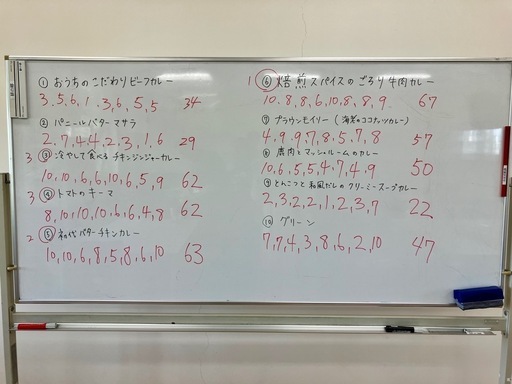 ① おうちのこだわりビーフカレー
3.5.6.1.3,6,5,5 34
② パニールバターマサラ
2.7,4,4,2,3,1,6 29
3 ③ 冷やして食べる チキンジンジャーカレー
10,10,6,6,10,6,5,9 62
3 ④ トマトのキーマ
8,10,10,10,6,6,4,8 62
2 ⑤ 初代バターチキンカレー
10,10,6,8,5,8,6,10 63
1 ⑥ 焙煎スパイスのごろり牛肉カレー
10.8,8,6,10,8,8,9. 67
⑦ プラウンモイリー (海老のココナッツカレー)
4,9,9,7,8,5,7,8 57
⑧ 鹿肉とマッシュルームのカレー
10,6,5,5,4,7,4,9 50
⑨ とんこつと和風だしのクリーミースープカレー
2,3,2,2,1,2,3,7 22
⑩ グリーン
7,7,4,3,8,6,2,10 47